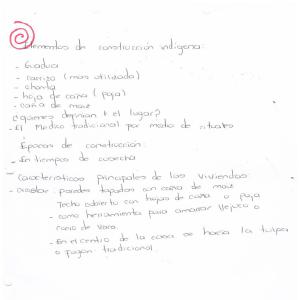 Elementos de construcción indigena:
- Guadua
- carrizo (mas utilizado)
- chonta
- hoja de caña (paja)
- caña de maiz
¿quienes definian el lugar?
- El Medico tradicional por medio de rituales
Épocas de construcción:
- En tiempos de cosecha
Caracteristicas principales de las Viviendas:
- circular: paredes tapadas con caña de maiz
Techo cubierto con hojas de caña o paja
- como herramienta para amarrar Vejuco o
de Vaca.
- En el centro de la casa se hacia la tulpa
o fogón tradicional.